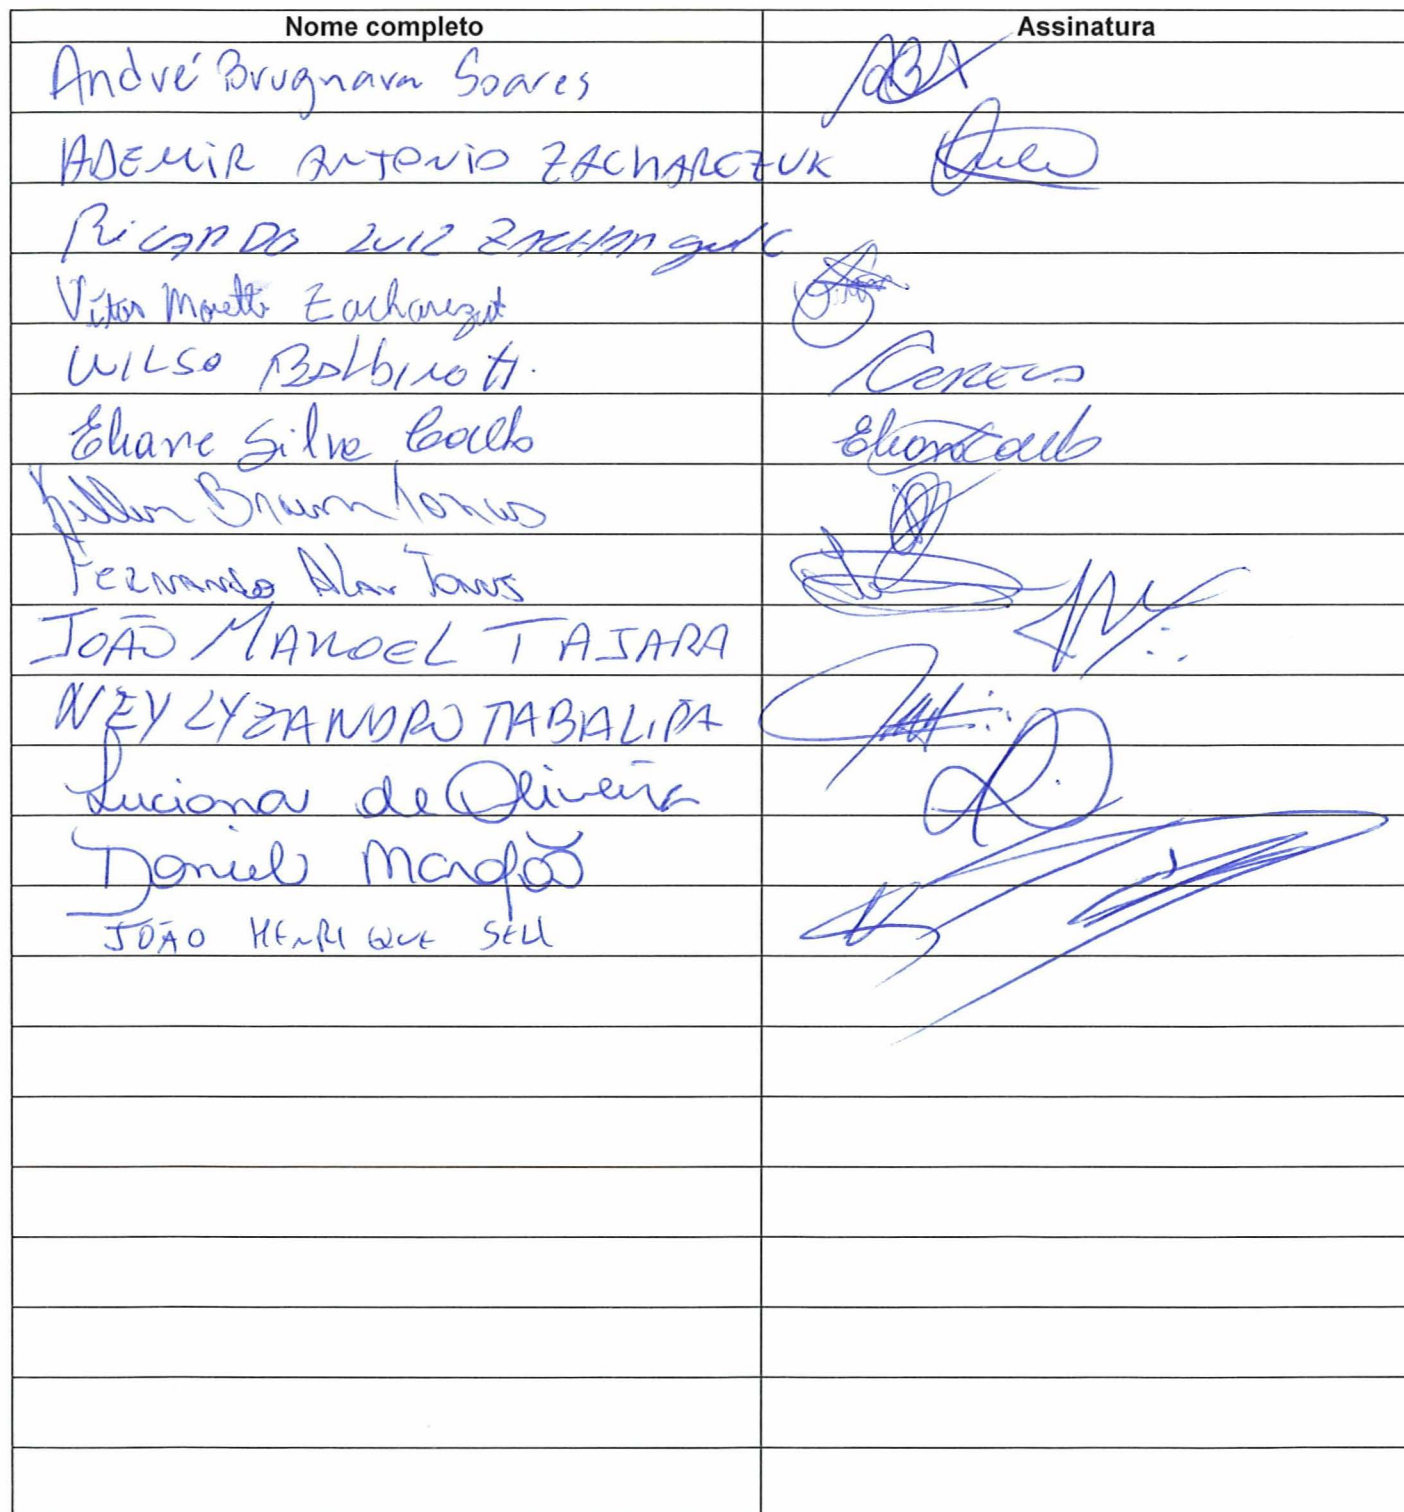 Nome completo Assinatura
André Brugnara Soares
ADEMIR ANTONIO ZACHARCZUK
RICARDO LUIZ
Vitor Moretti Zacharczuk
WILSO Balbinoti.
Eliane Silva
Braun Tonus
FERNANDO Alan Tonus
JOÃO MANOEL TAJARA
NEY LYZANDRO TABALIPA
Luciana de Oliveira
Daniel
JOÃO HENRIQUE SELL